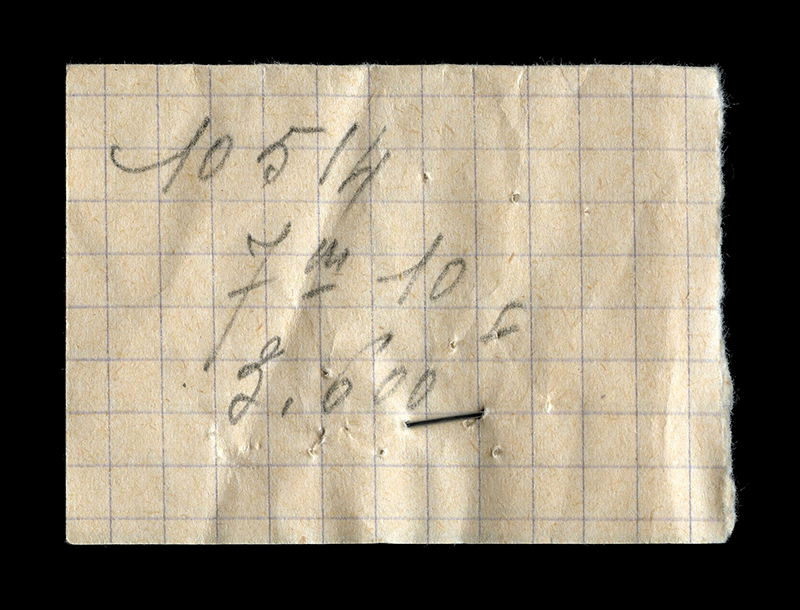 10 514
7 m 10
2.600